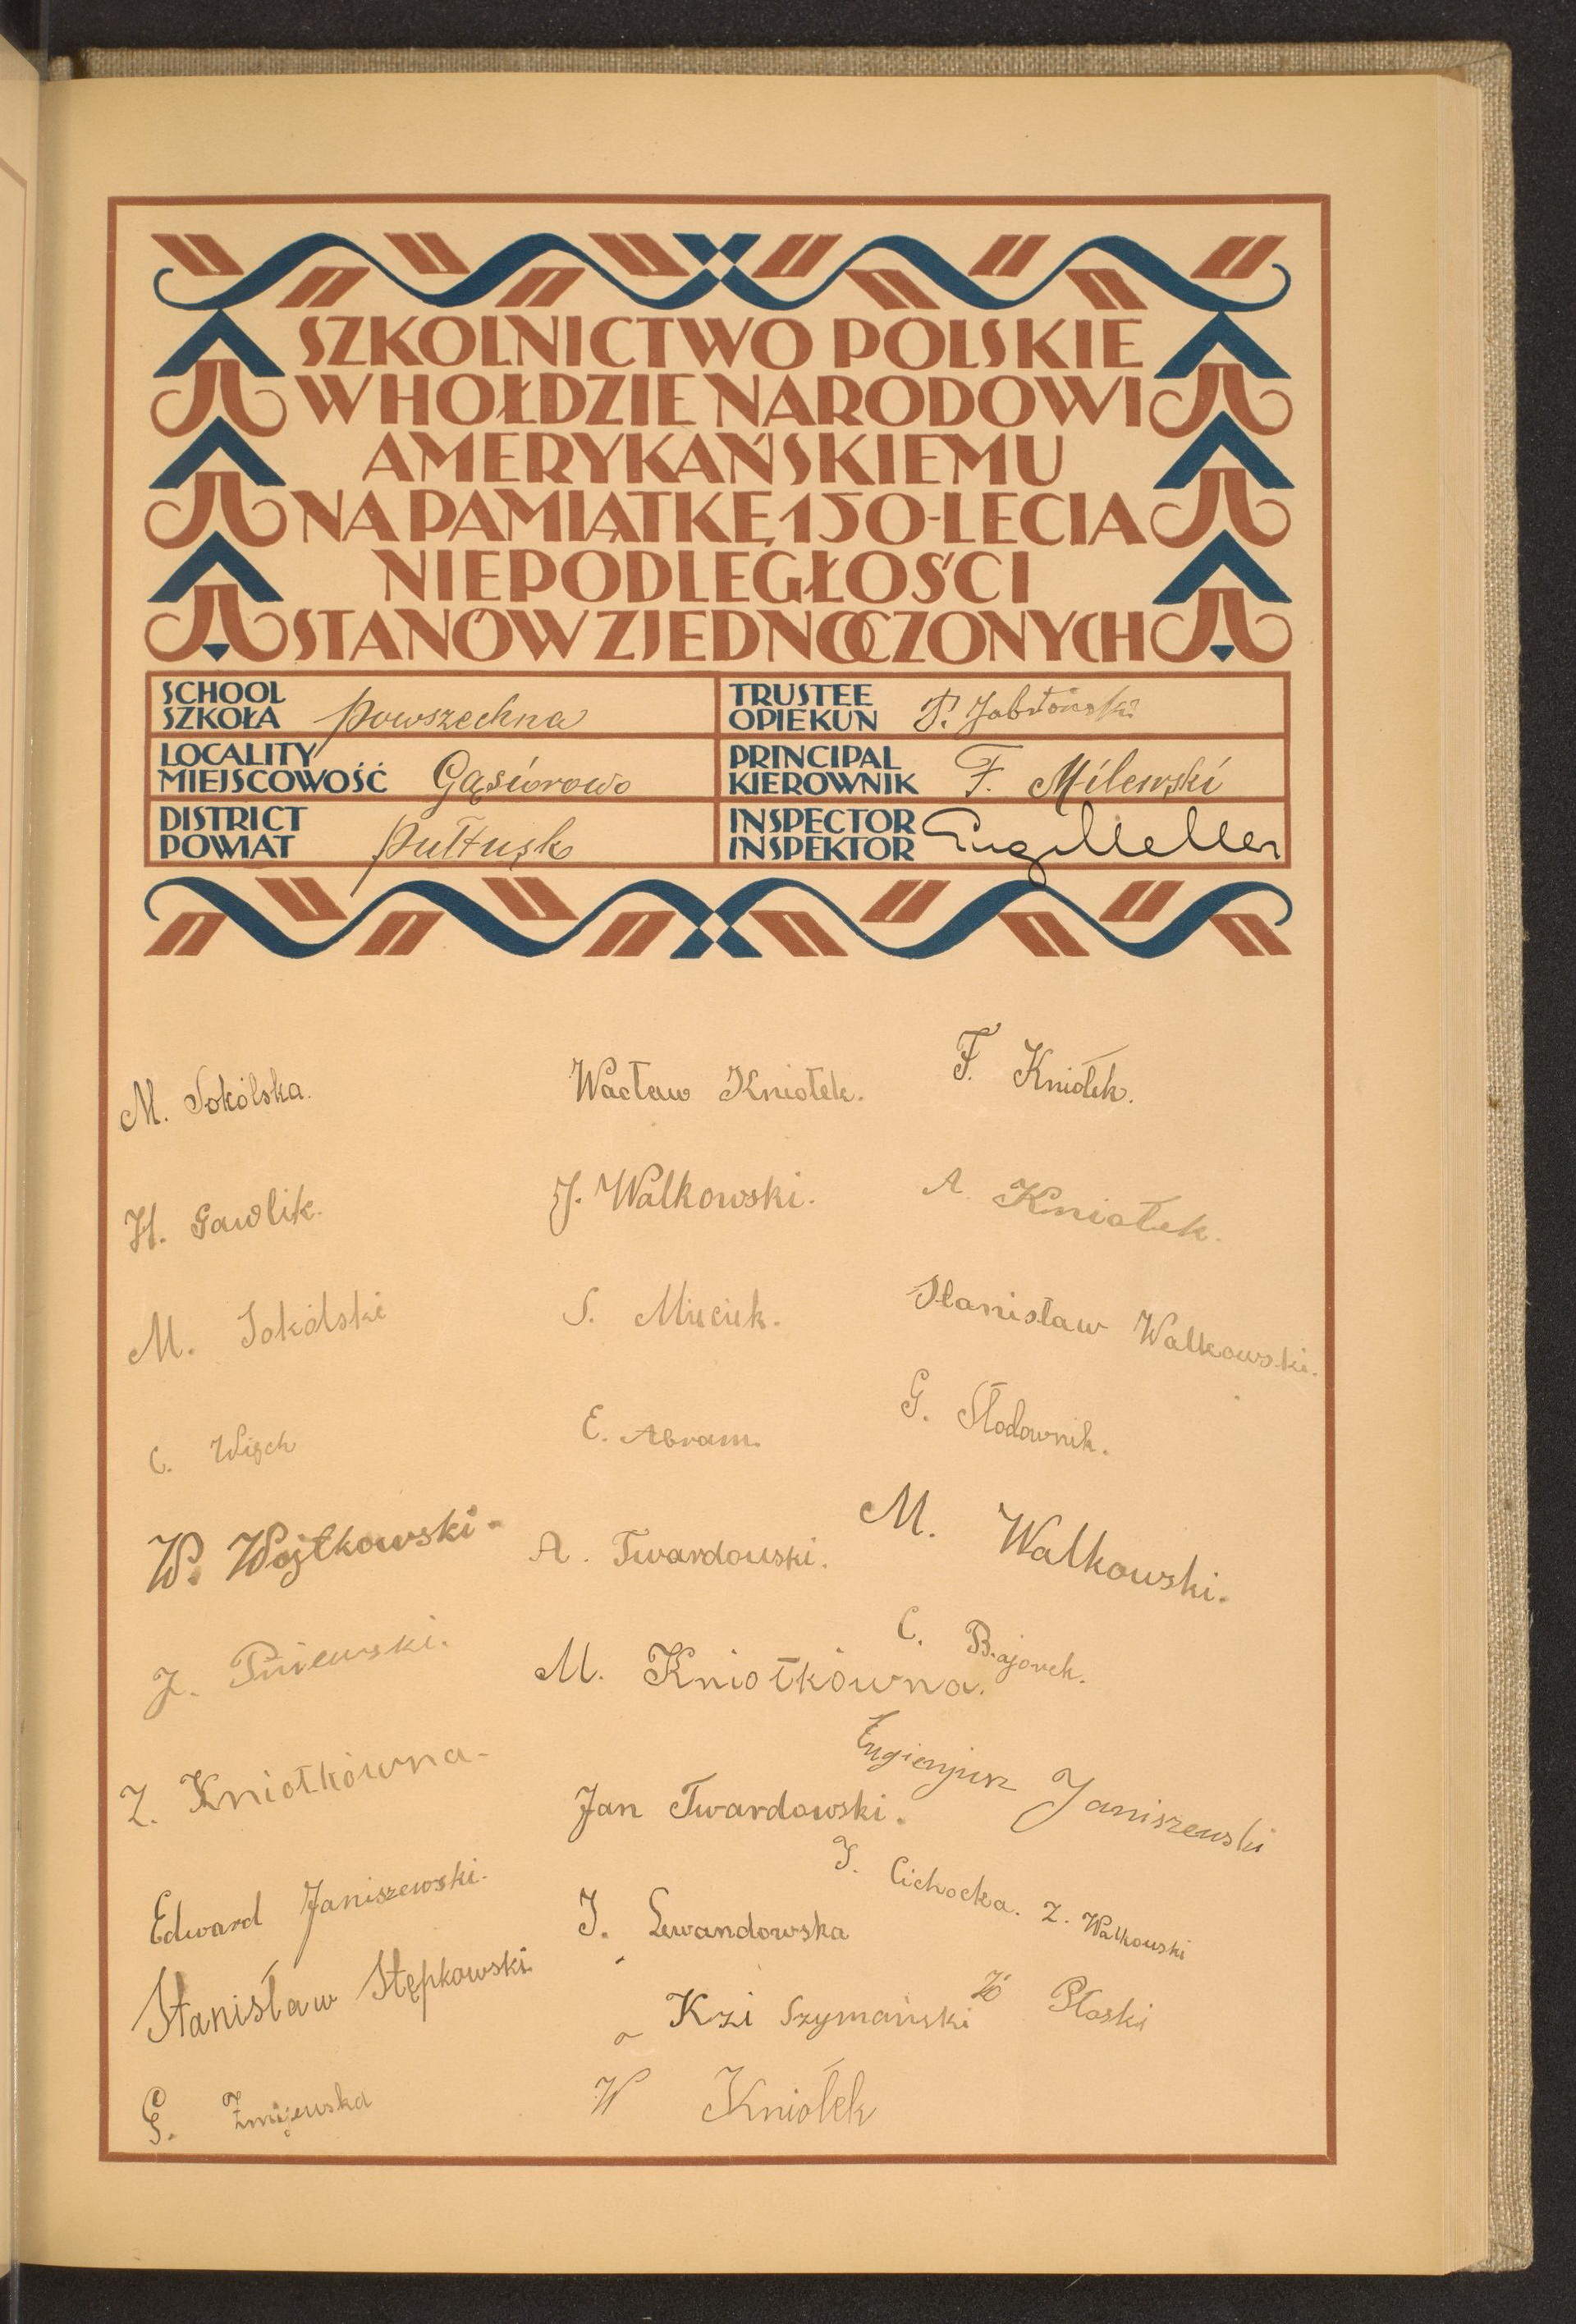 SZKOLNICTWO POLSKIE
W HOŁDZIE NARODOWI
AMERYKAŃSKIEMU
NA PAMIĄTKĘ 150-LECIA
NIEPODLEGŁOŚCI
STANÓW ZJEDNOCZONYCH
SCHOOL
SZKOŁA
Powszechna
TRUSTEE
OPIEKUN
P. Jabłoński
LOCALITY
MIEJSCOWOŚĆ
Gąsiorowo
PRINCIPAL
KIEROWNIK
F. Milewski
DISTRICT
POWIAT
Pułtusk
INSPECTOR
INSPEKTOR
M. Sokólska.
H. Gawlik.
M. Sokólski
C. Więch
W. Wojtkowski.
J. Pniewski.
Z. Kniołkówna.
Edward Janiszewski.
Stanisław Stępkowski.
G. Żmijewska
Wacław Kniołek.
J. Walkowski.
S.
E. Abram.
A. Twardowski.
M. Kniołkówna.
Jan Twardowski.
J. Lewandowska
Kzi Szymański
W Kniołek
F. Kniołek.
A. Kniołek.
Stanisław Walkowski.
G. Słodownik.
M. Walkowski.
C. Bajorek.
Eugienjusz Janiszewski
J. Cichocka.
Z. Walkowski
Płoski